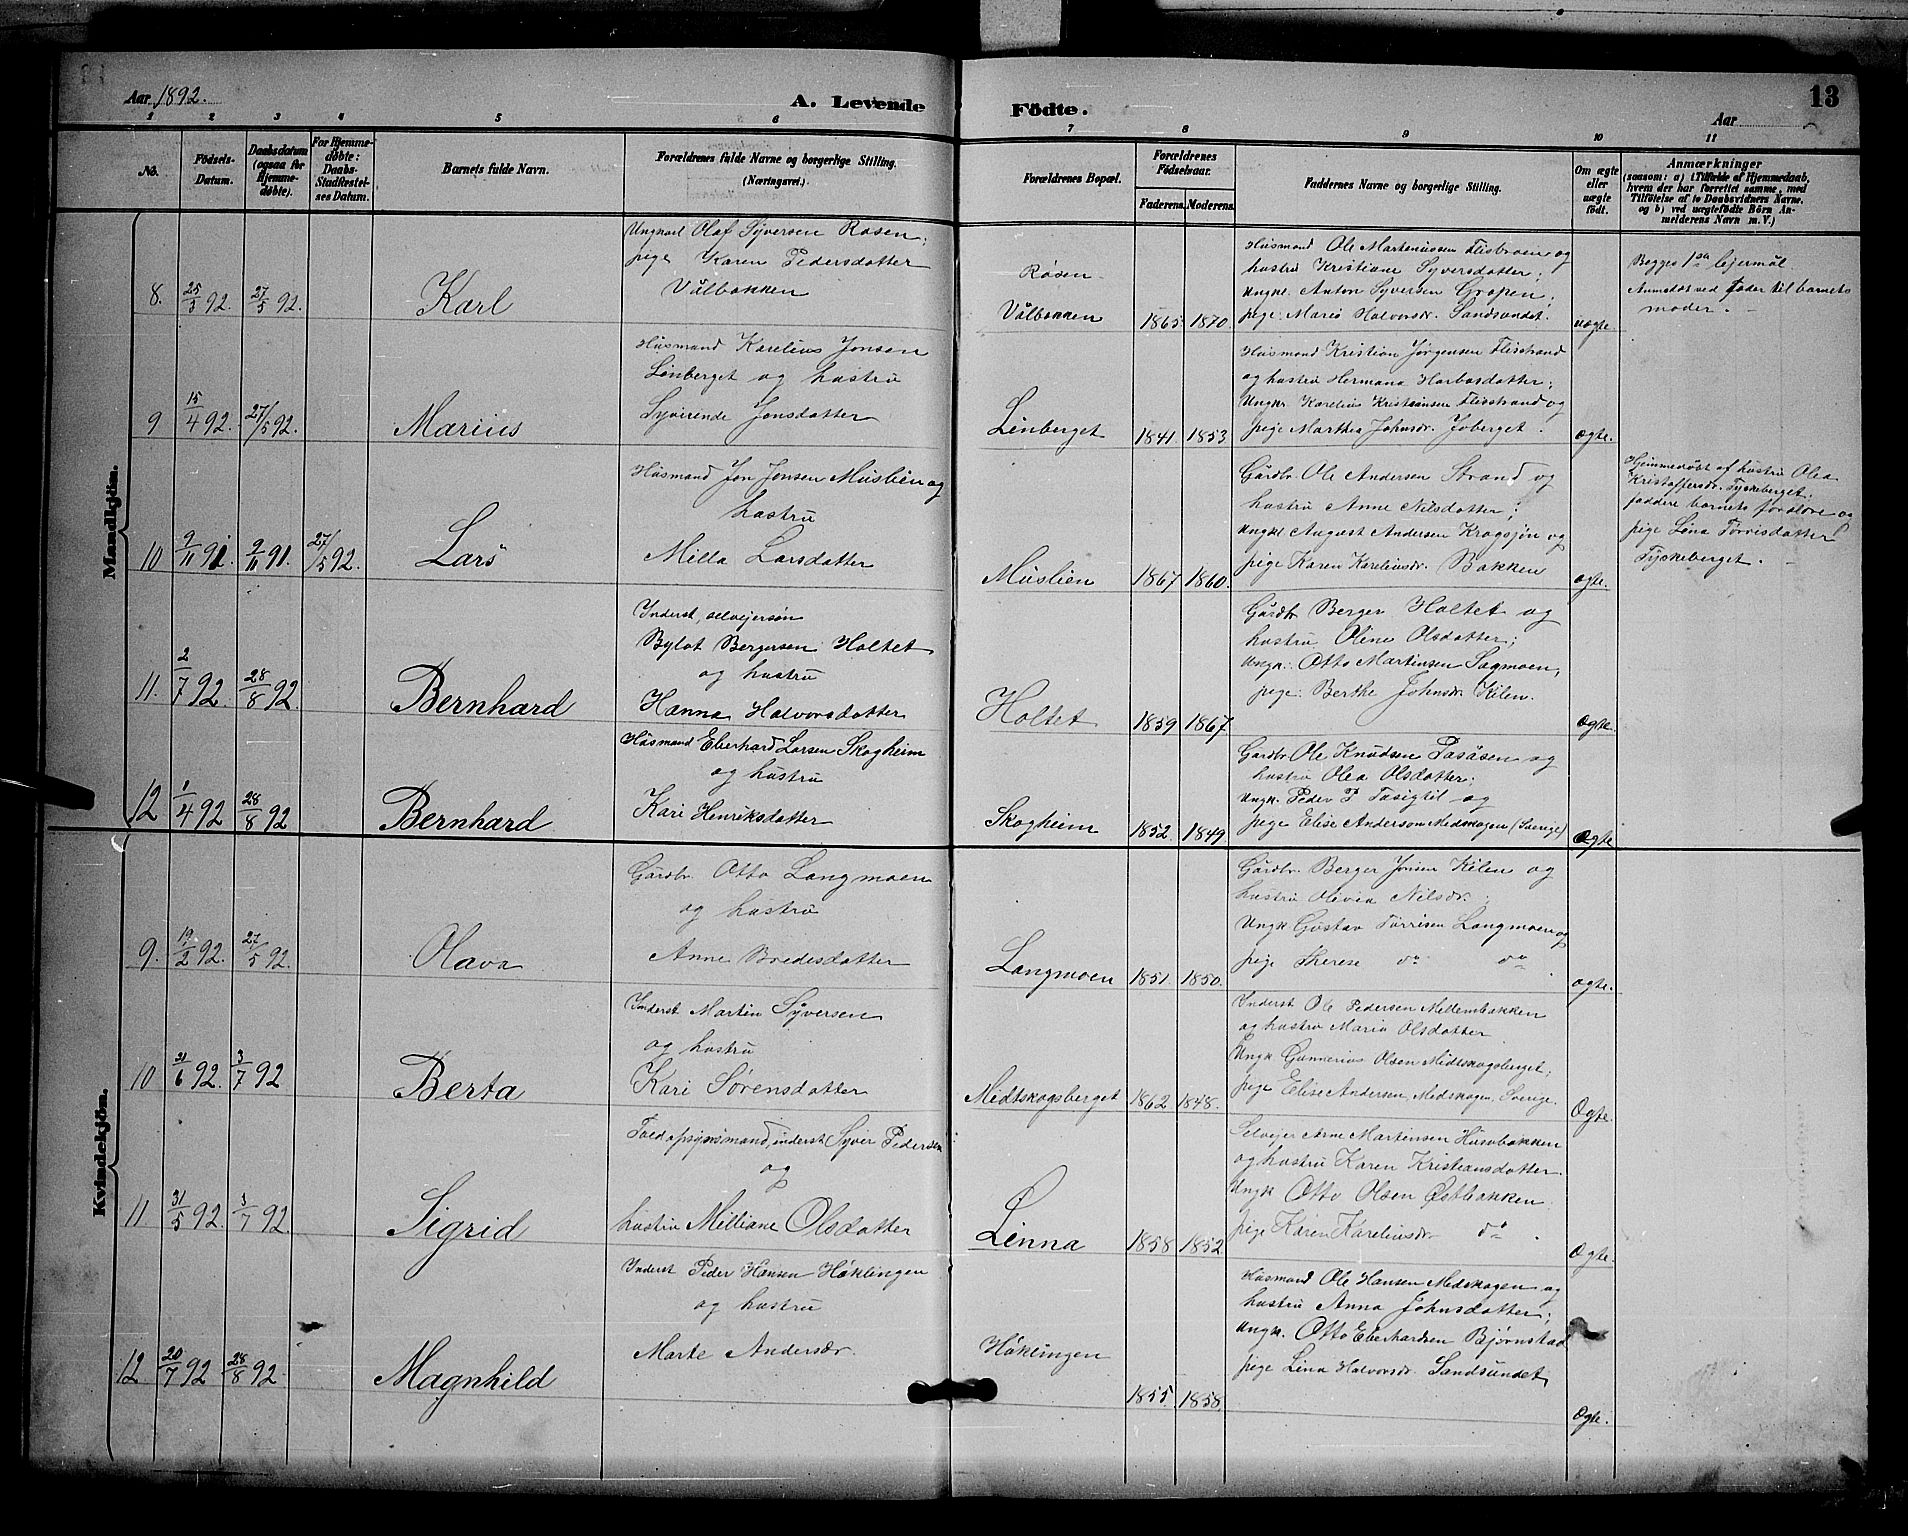 Aar 1892.
A. Levende Födte.
13
Aar
1 2 3 4 5 6 7 8 9 10 11
No.
Födsels-Datum.
Daabsdatum (ogsaa for Hjemme-døbte).
For Hjemme-døbte: Daabs-Stadfæstel-ses Datum.
Barnets fulde Navn.
Forældrenes fulde Navne og borgerlige Stilling. (Næringsvei.)
Forældrenes Bopæl.
Forældrenes Födselsaar.
Faderens. Moderens.
Faddernes Navne og borgerlige Stilling.
Om ægte eller uægte født.
Anmærkninger
(saasom: a) i Tilfælde af Hjemmedaab,
hvem der har forrettet samme, med
Tilföielse af to Daabsvidners Navne.
og b) ved uægtefödte Börn An-
melderens Navn m. V.)
Mandkjön.
8. 25/3 92. 27/5 92. Karl
Ungkarl Olaf Syversen Rosen;
pige Karen Pedersdatter
Vålbakken
Røsen
Vålbakken 1865 1870.
Husmand Ole Marteniussen Flisbroen og
hustru Kristiane Syversdatter;
Ungk. Anton Syversen Gropen;
pige: Marie Halvorsdr. Sandsundet.
uægte
Begges 1ste lejermål.
Anmeldt ved fader til barnets
moder.
9 15/4 92. 27/5 92. Marius
Husmand Karelius Jonsen
Linberget og hustru
Syverende Jonsdatter
Linberget 1841. 1853
Husmand Kristian Jørgensen Flisstrand
og hustru Hermana Harbosdatter;
Ungkr Karelius Kristiansen Flisstrand og
pige Marthea Johnsdr. Joberget.
ægte.
10 9/11 91 9/11 91. 27/5 92. Lars
Husmand Jon Jonsen Muslien og
hustru
Milla Larsdatter
Muslien 1867 1860.
Gårdbr. Ole Andersen Strand og
hustru Anne Nilsdatter;
Ungkl August Andersen Kragsjøn og
pige Karen Kareliusdr. Bakken
ægte.
Hjemmedøbt af hustru Olea
Kristoffersdr. Tyskeberget;
faddere barnets forældre og
pige Lina Torrisdatter
Tyskeberget.
11. 2/7 92. 28/8 92. Bernhard
Inderst, selvejersøn
Bylat Bergersen Holtet
og hustru
Hanna Halvorsdatter
Holtet 1859 1867
Gårdb. Berger Holtet og
hustru Oline Olsdatter;
Ungk: Otto Martinsen Sagmoen,
pige: Berthe Johnsdr. Kilen.
Ægte.
12 1/4 92 28/8 92 Bernhard
Husmand Eberhard Larsen Skogheim
og hustru
Kari Henriksdatter
Skogheim 1852. 1849.
Gårdbr Ole Knudsen Tasåsen og
hustru Olea Olsdatter;
Ungk. Peder P Tasigtil og
pige Elise Anderson Medskogen (Sverige)
Ægte
Kvindekjön.
9. 19/2 92. 27/5 92. Olava
Gårdbr. Otto Langmoen
og hustru
Anne Bredesdatter
Langmoen 1851. 1850.
Gårdbr. Berger Jonsen Kilen og
hustru Olivia Nilsdr.
Ungk Gustav Torrisen Langmoen og
pige Therese do do
ægte.
10 21/6 92. 3/7 92 Berta
Inderst Martin Syversen
og hustru
Kari Sørensdatter
Midtskogsberget 1862 1848.
Inderst Ole Pedersen Mellembakken
og hustru Maria Olsdatter
Ungk Gunnerius Olsen Midtskogsberget;
pige Elise Andersen, Medskogen, Sverige.
Ægte.
11. 31/5 92. 3/7 92 Sigrid
Toldopsynsmand, inderst Syver Pedersen
og
hustru Milliane Olsdatter
Linna 1858 1852
Selvejer Arne Martinsen Husubakken
og hustru Karen Kristiansdatter
Ungk Otto Olsen Østbakken
pige Karen Kareliusdr do.
Ægte.
12 20/7 92 28/8 92. Magnhild
Inderst Peder Hansen Høklingen
og hustru
Marte Andersdr.
Høklingen
1855. 1858
Husmand Ole Hansen Medskogen og
hustru Anna Johnsdatter;
Ungk. Otto Eberhardsen Bjørnstad
pige Lina Halvorsdr. Sandsundet,
Ægte.